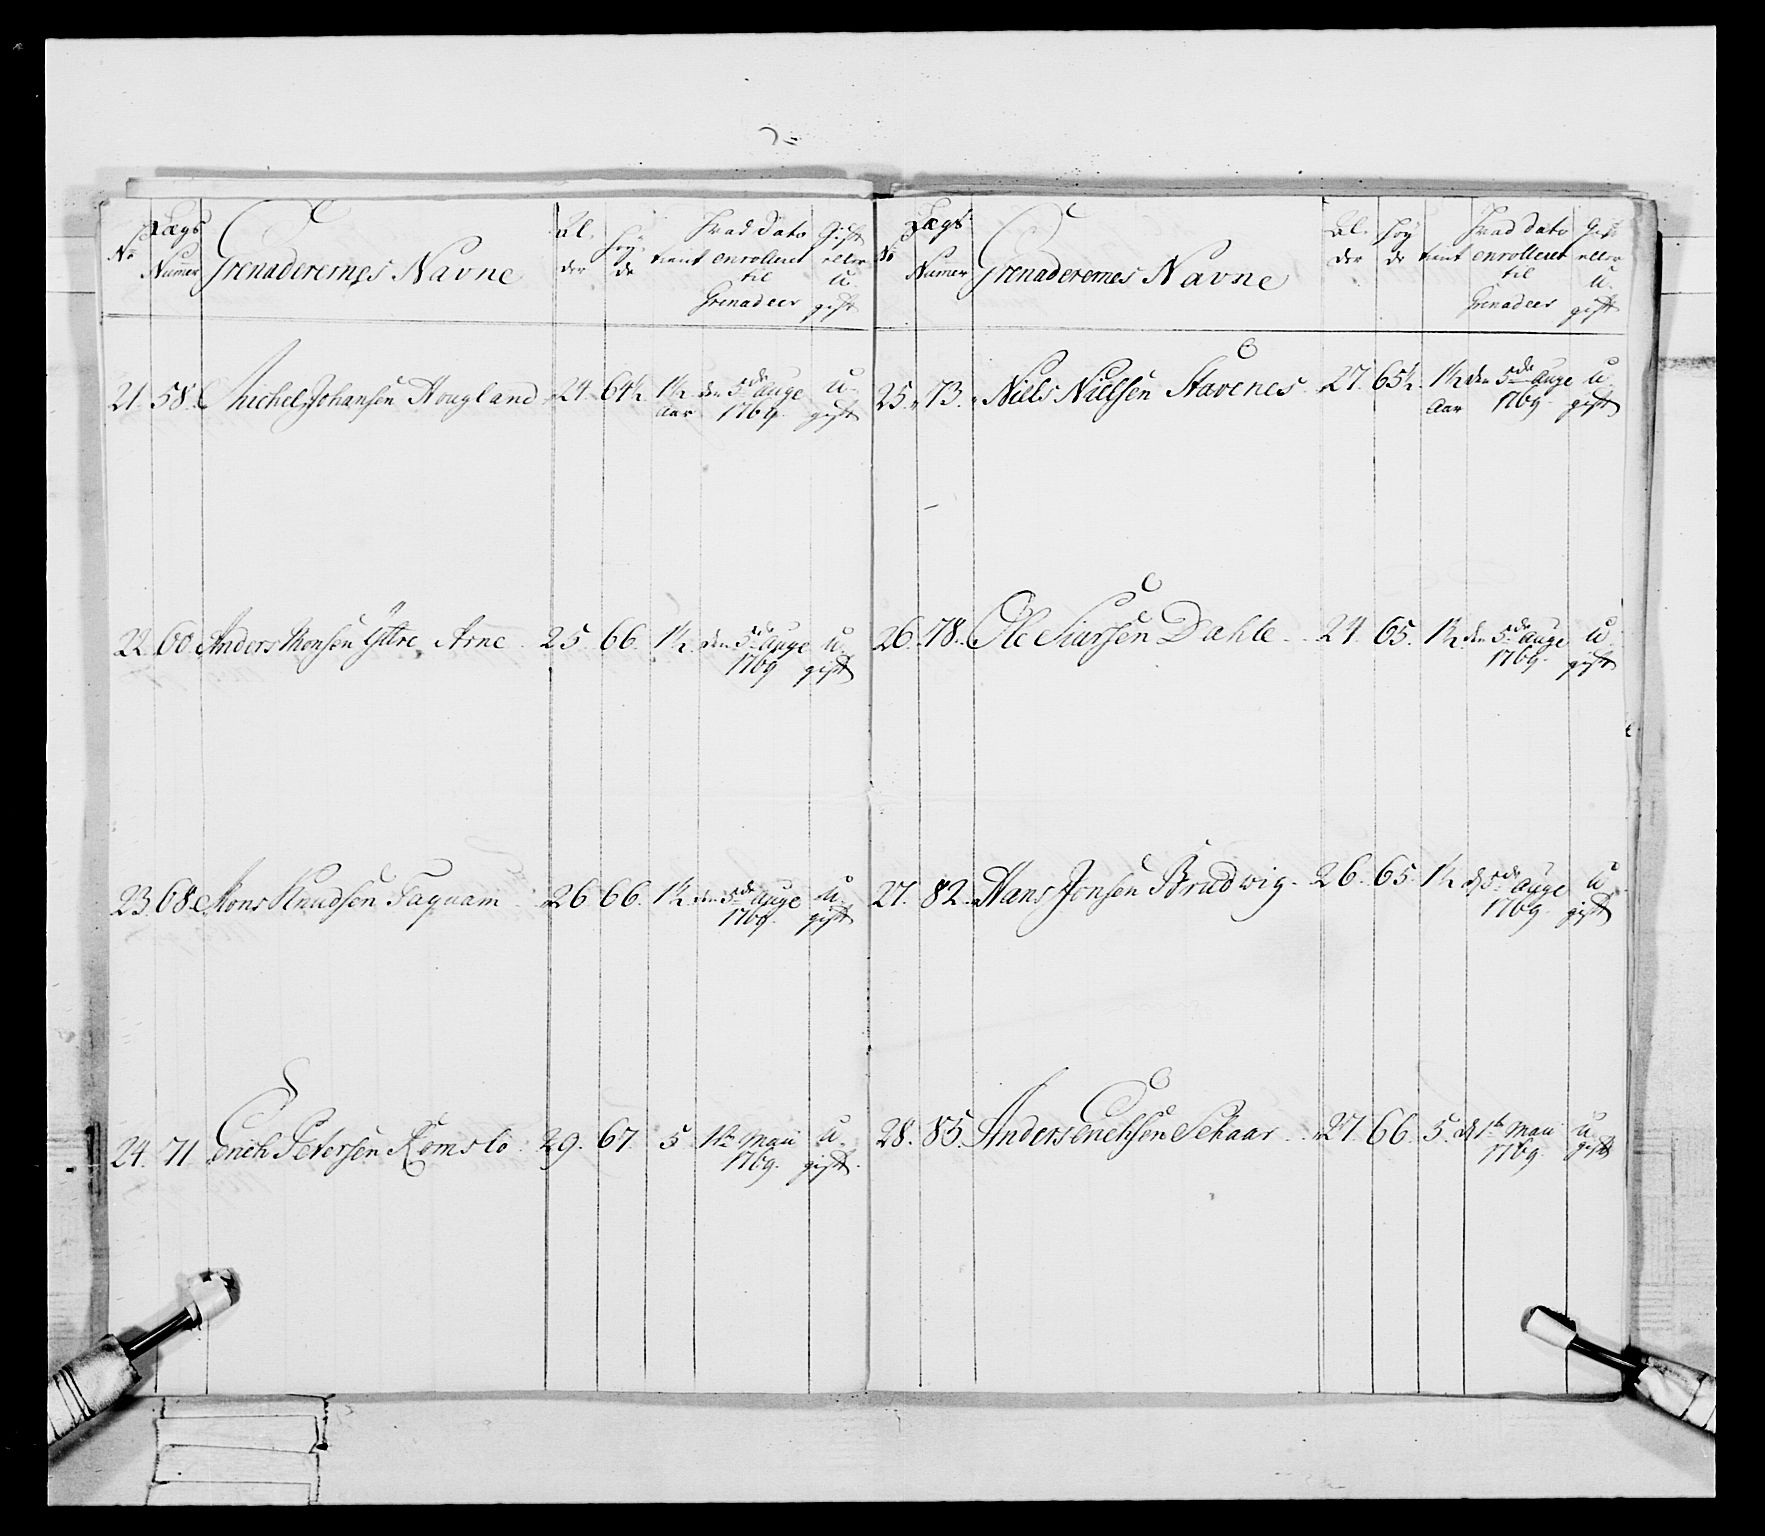 No Lægs Numer Grenaderernes Navne Al. der Høy de tient Hvad Dato enrolleret til Grenadeer Gift eller u. gift
21. 58. Michel Johansen Hougland 24. 64½ 1½ den 5de Auge u.
Aar 1769. gift
22. 60 Anders Monsen Yttre Arne 25. 66. 1½. den 5de Auge u.
1769 gift
23. 68. Mons Knudsen Faquam 26 66. 1½. den 5de Auge u.
1769. gift
24. 71 Erich Petersen Romslo 29. 67. 5 1te Maii u.
1769. gift.
No Lægs Numer Grenaderernes Navne Al. der Høy de tient Hvad Dato enrolleret til Grenadeer Gift eller u. gift
25. 73. Niels Nielsen Stavenes 27. 65½. 1½ den 5de Auge u.
Aar 1769. gift
26. 78. Ole Siursen Dahle 24. 65. 1½. den 5de Auge u
1769. gift
27. 82. Hans Jonsen Brudwig. 26. 65. 1½ d. 5de Auge u.
1769. gift
28. 85. Anders Erichsen Schaar 27. 66. 5. d. 1te Maii u.
1769. gift